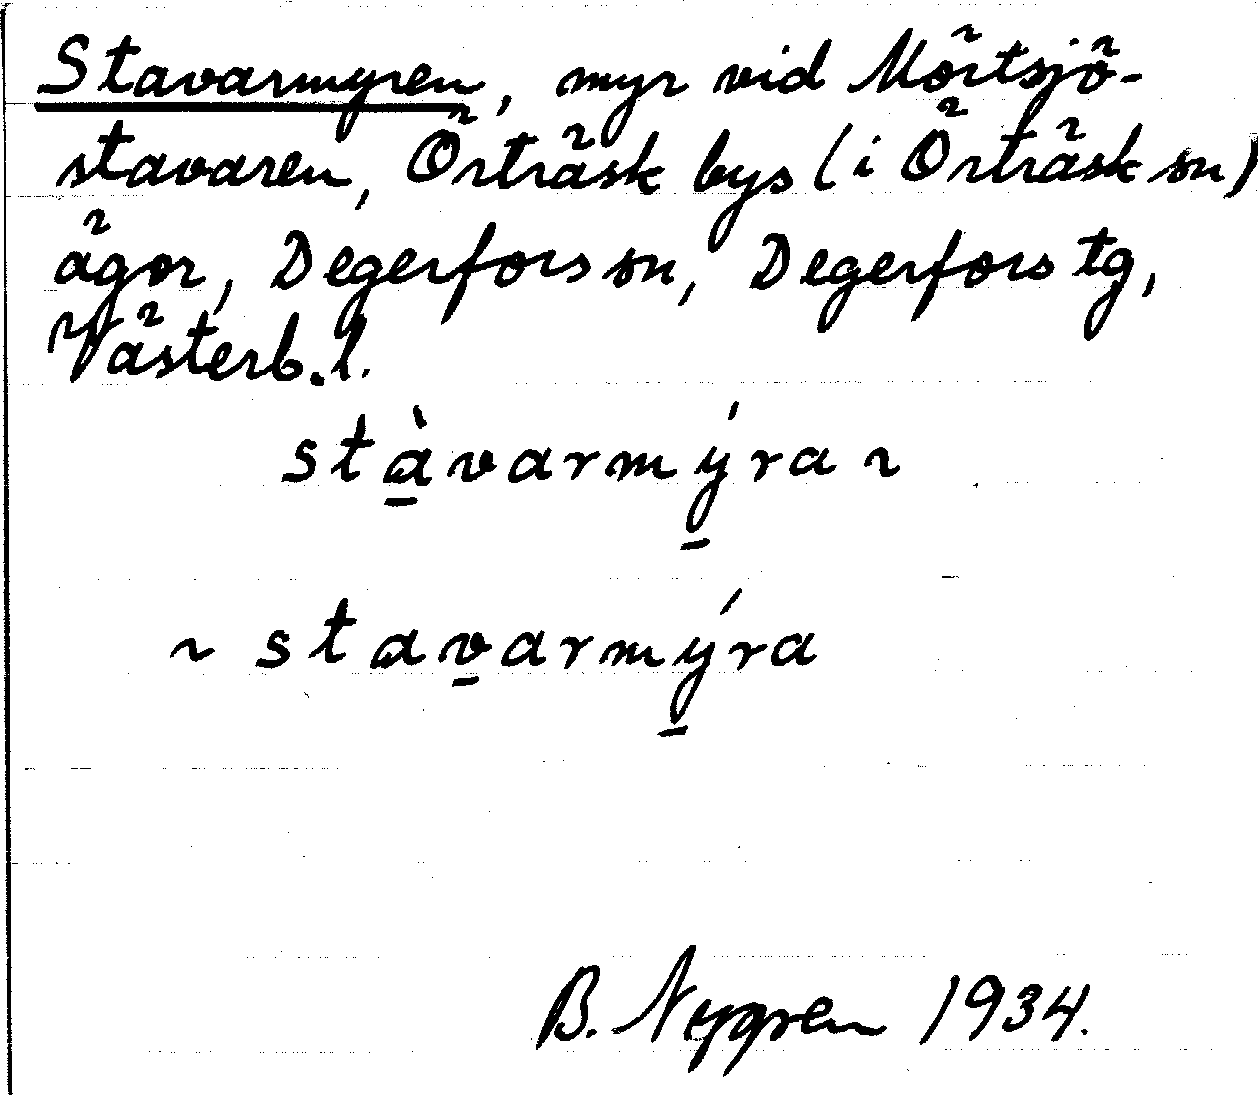 Stavarmyren, myr vid Mörtsjö-
stavaren, Örträsk bys (i Örträsk sn)
ägor, Degerfors sn, Degerfors tg,
Västerb. l.
stà̱varmý̱ra ~
~ stav̱armý̱ra
B. Nygren 1934.